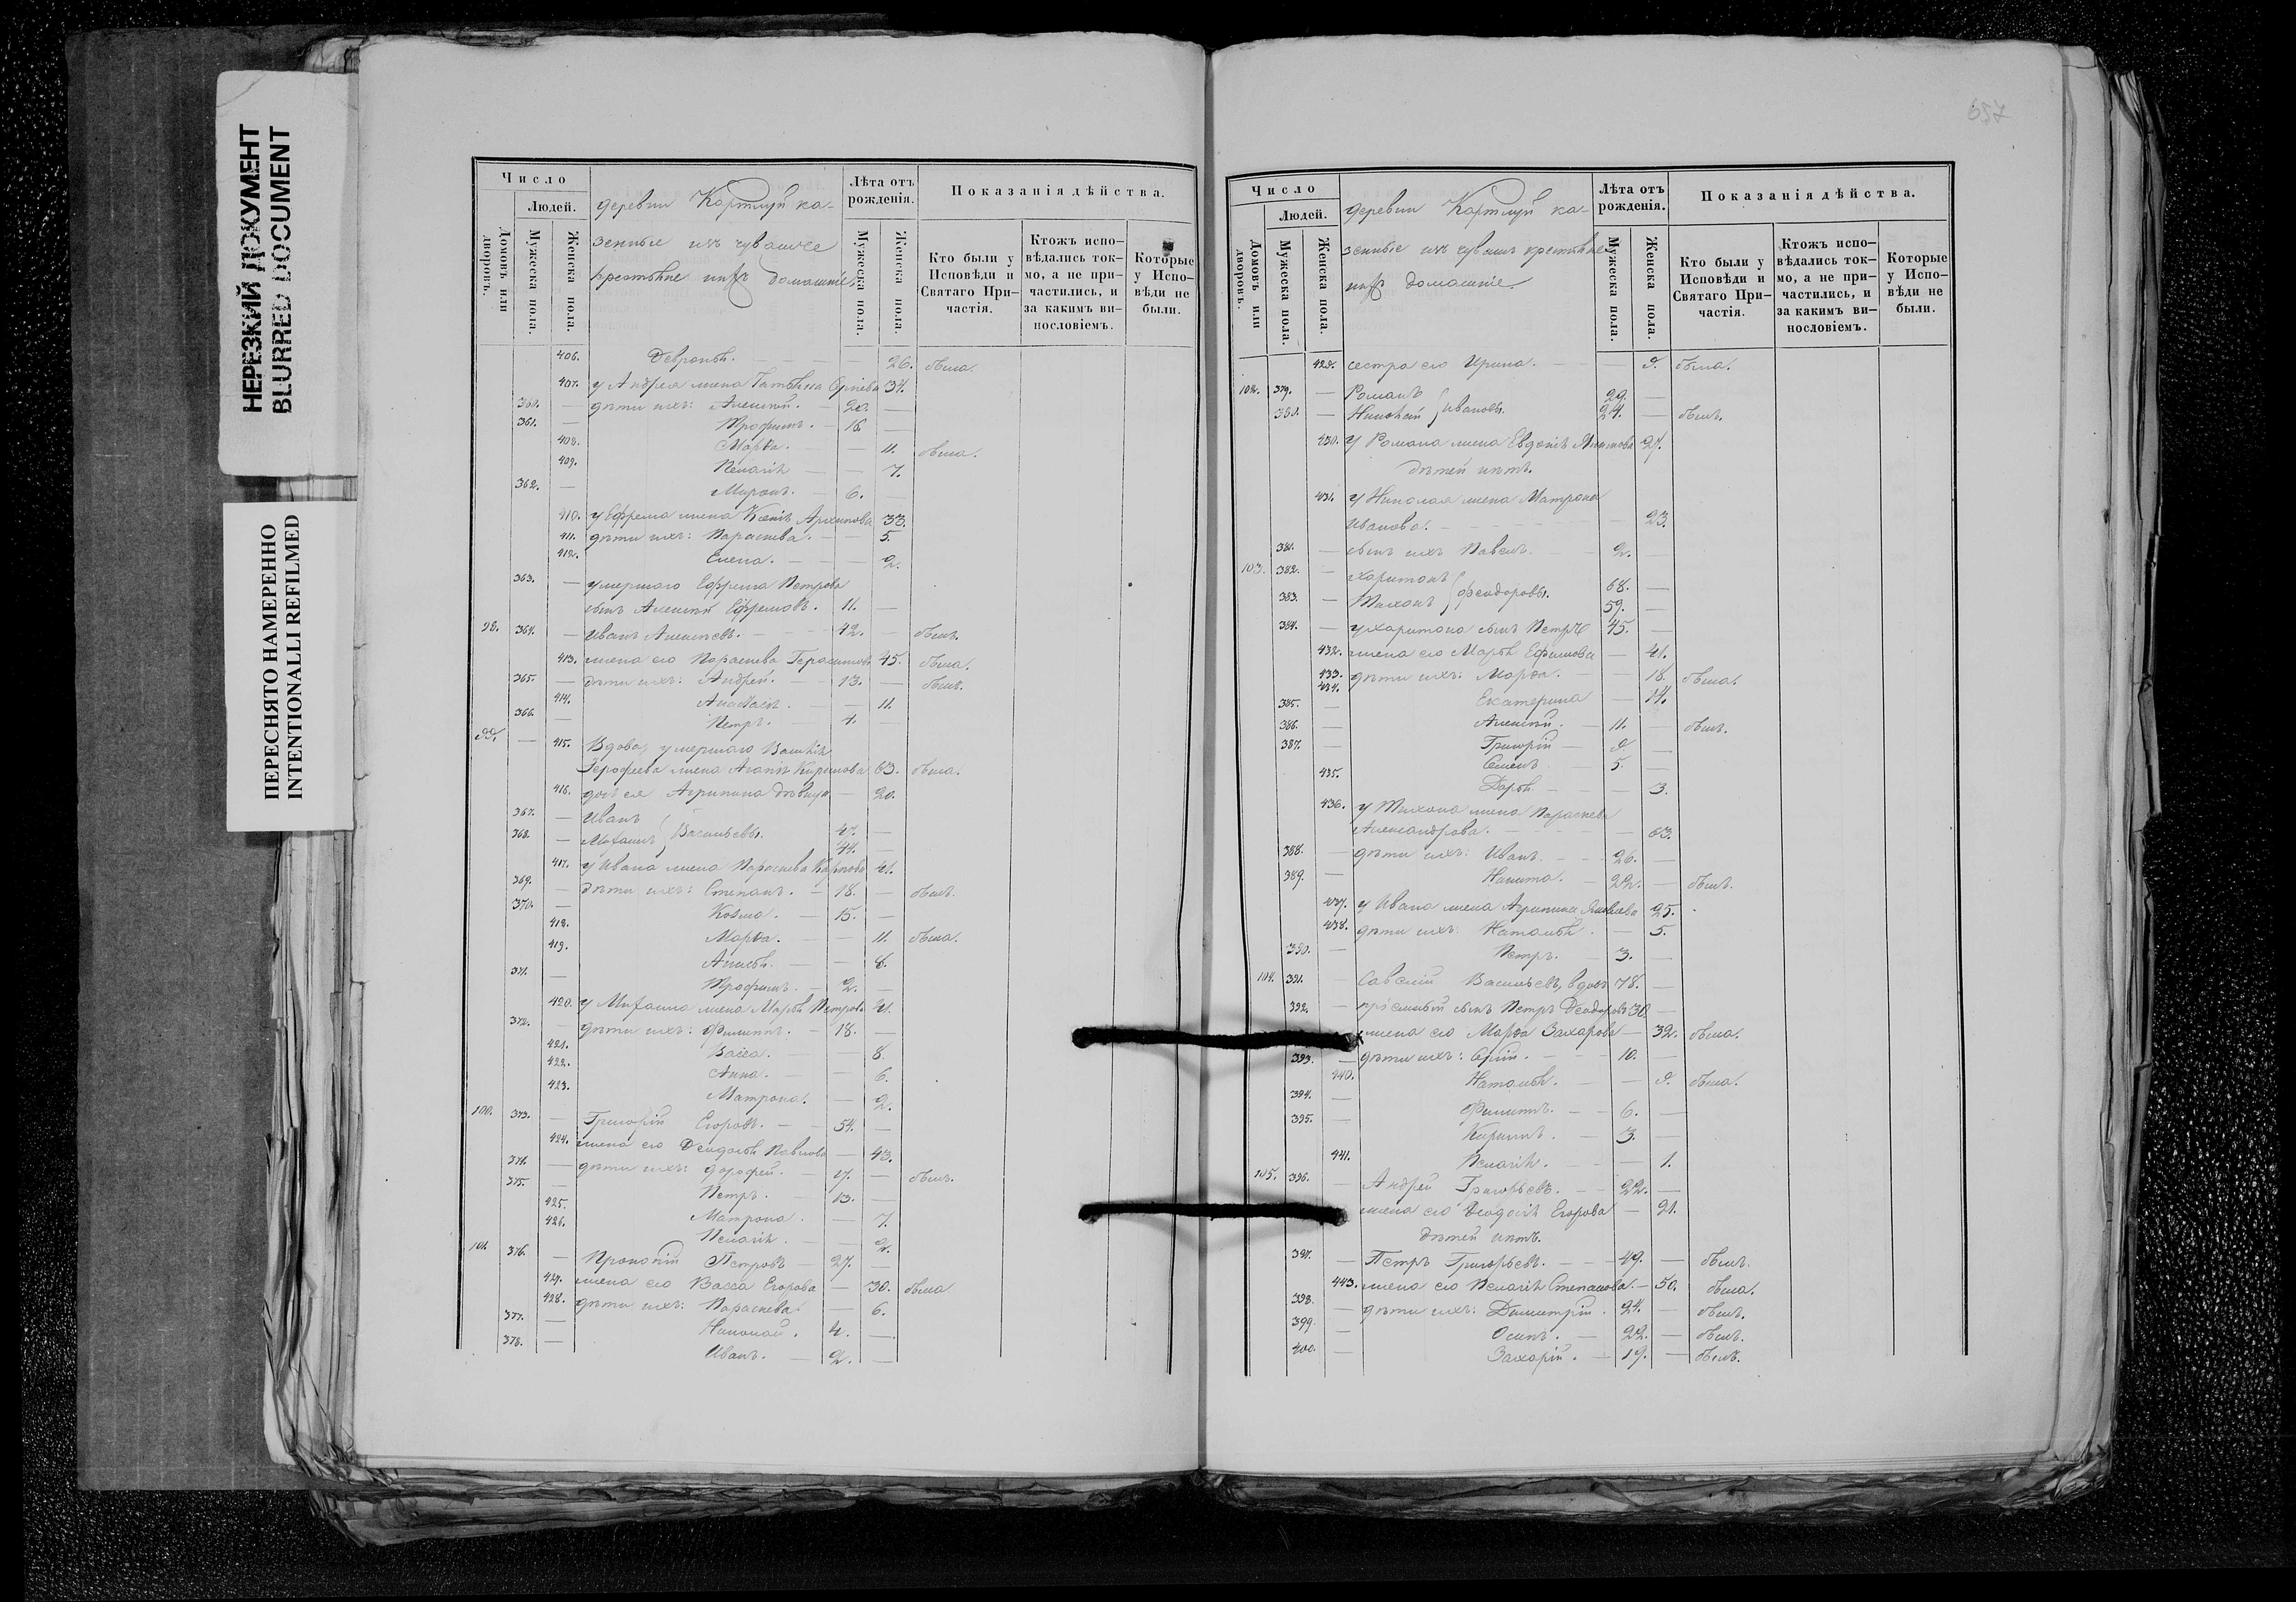 НЕРЕЗКИЙ ДОКУМЕНТ
BLURRED DOCUMENT
ПЕРЕСНЯТО НАМЕРЕННО
INTENTIONALLI REFILMED
Число
Людей.
Домовъ или дворовъ.
Мужеска пола.
Женска пола.
деревни Картлуй ка-
зенные изъ чуваше
крестьяне и ихъ домашніе
Лѣта отъ рожденія.
Мужеска пола.
Женска пола.
Показанія дѣйства.
Кто были у Исповѣди и Святаго Причастія.
Ктожъ исповѣдались токмо, а не причастились, и за какимъ винословіемъ.
Которые у Исповѣди не были.
406. Февронья. 26. была.
407. у Андрея жена Татьяна Сергіева 34.
360. дѣти ихъ: Алексѣй. 20.
361. Трофимъ. 18.
408. Марѳа. 11. была.
409. Пелагія 7.
362. Миронъ. 6.
410. у Ефрема жена Ксенія Архипова 33.
411. дѣти ихъ: Параскева. 5.
412. Елена. 2.
363. умершаго Ефрема Петрова
сынъ Алексѣй Ефремовъ. 11.
98. 364. Иванъ Алексѣевъ. 42. былъ.
413. жена его Параскева Герасимова 45. была.
365. дѣти ихъ: Андрей. 13. былъ.
414. Анастасія. 11.
366. Петръ. 4.
99. 415. Вдова, умершаго Василія
Ерофеева жена Агапія Кирилова 63. была.
416. дочь ея Агрипина дѣвица 20.
367. Иванъ
368. Михаилъ } Васильевы. 47.
44.
417. у Ивана жена Параскева Карпова 41.
369. дѣти ихъ: Степанъ. 18. былъ.
370. Козма. 15.
418. Марѳа. 11. была.
419. Акилина. 8.
371. Трофимъ. 2.
420. у Михаила жена Марья Петрова 41.
372. дѣти ихъ: Филиппъ. 18.
421. Васса. 8.
422. Анна. 6.
423. Матрона. 2.
100. 373. Григорій Егоровъ. 54.
424. жена его Ѳеодосія Павлова 43.
374. дѣти ихъ: Дорофей. 17. былъ.
375. Петръ. 13.
425. Матрона. 7.
426. Пелагія. 2.
101. 376. Прокопій Петровъ 27.
427. жена его Васса Егорова 30. была
428. дѣти ихъ: Параскева 6.
377. Николай. 4.
378. Иванъ. 2.
657
Число
Людей.
Домовъ или дворовъ.
Мужеска пола.
Женска пола.
деревни Картлуй ка-
зенные изъ чувашъ крестьяне
и ихъ домашніе.
Лѣта отъ рожденія.
Мужеска пола.
Женска пола.
Показанія дѣйства.
Кто были у Исповѣди и Святаго Причастія.
Ктожъ исповѣдались токмо, а не причастились, и за какимъ винословіемъ.
Которые у Исповѣди не были.
429. сестра его Ирина. 9. была.
102. 379. Романъ 29.
380. Николай } Ивановы. 24. былъ.
430. У Романа жена Евдокія 27.
дѣтей нѣтъ.
431. у Николая жена Матрона
Иванова. 23.
381. сынъ ихъ Павелъ. 2.
103. 382. Харитонъ 68.
383. Тихонъ } Феодоровы. 59.
384. у Харитона сынъ Петръ 45.
432. жена его Марья Ефимова 41.
433. дѣти ихъ: Марѳа. 18. была.
434. Екатерина 14.
385. Алексѣй. 11. былъ.
386. Григорій 9.
387. Семенъ 5.
435. Дарья. 3.
436. у Тихона жена Параскева
Александрова. 63.
388. дѣти ихъ: Иванъ. 26.
389. Никита. 22. былъ.
437. у Ивана жена Агрипина Яковлева 25.
438. дѣти ихъ: Наталья. 5.
390. Петръ. 3.
104. 391. Савелій Васильевъ, вдовъ 78.
392. пріемный сынъ Петръ Ѳеодоровъ 30.
жена его Марѳа Захарова 32. была.
393. дѣти ихъ: Сергій. 10.
440. Наталья. 9. была.
394. Филиппъ. 6.
395. Кириллъ. 3.
441. Пелагія. 1.
105. 396. Андрей Григорьевъ. 22.
жена его Ѳеодосія Егорова 21.
дѣтей нѣтъ.
397. Петръ Григорьевъ. 49. былъ.
443. жена его Пелагія Степанова. 50. была.
398. дѣти ихъ: Димитрій. 24. былъ.
399. Осипъ. 22. былъ.
400. Захарій. 19. былъ.